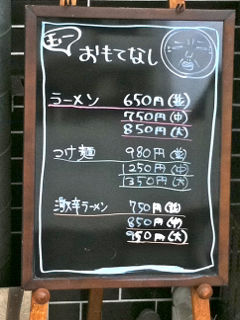 玉一 おもてなし
ラーメン 650円(並)
750円(中)
850円(大)
つけ麺 980円(並)
1250円(中)
1350円(大)
激辛ラーメン 750円(並)
850円(中)
950円(大)